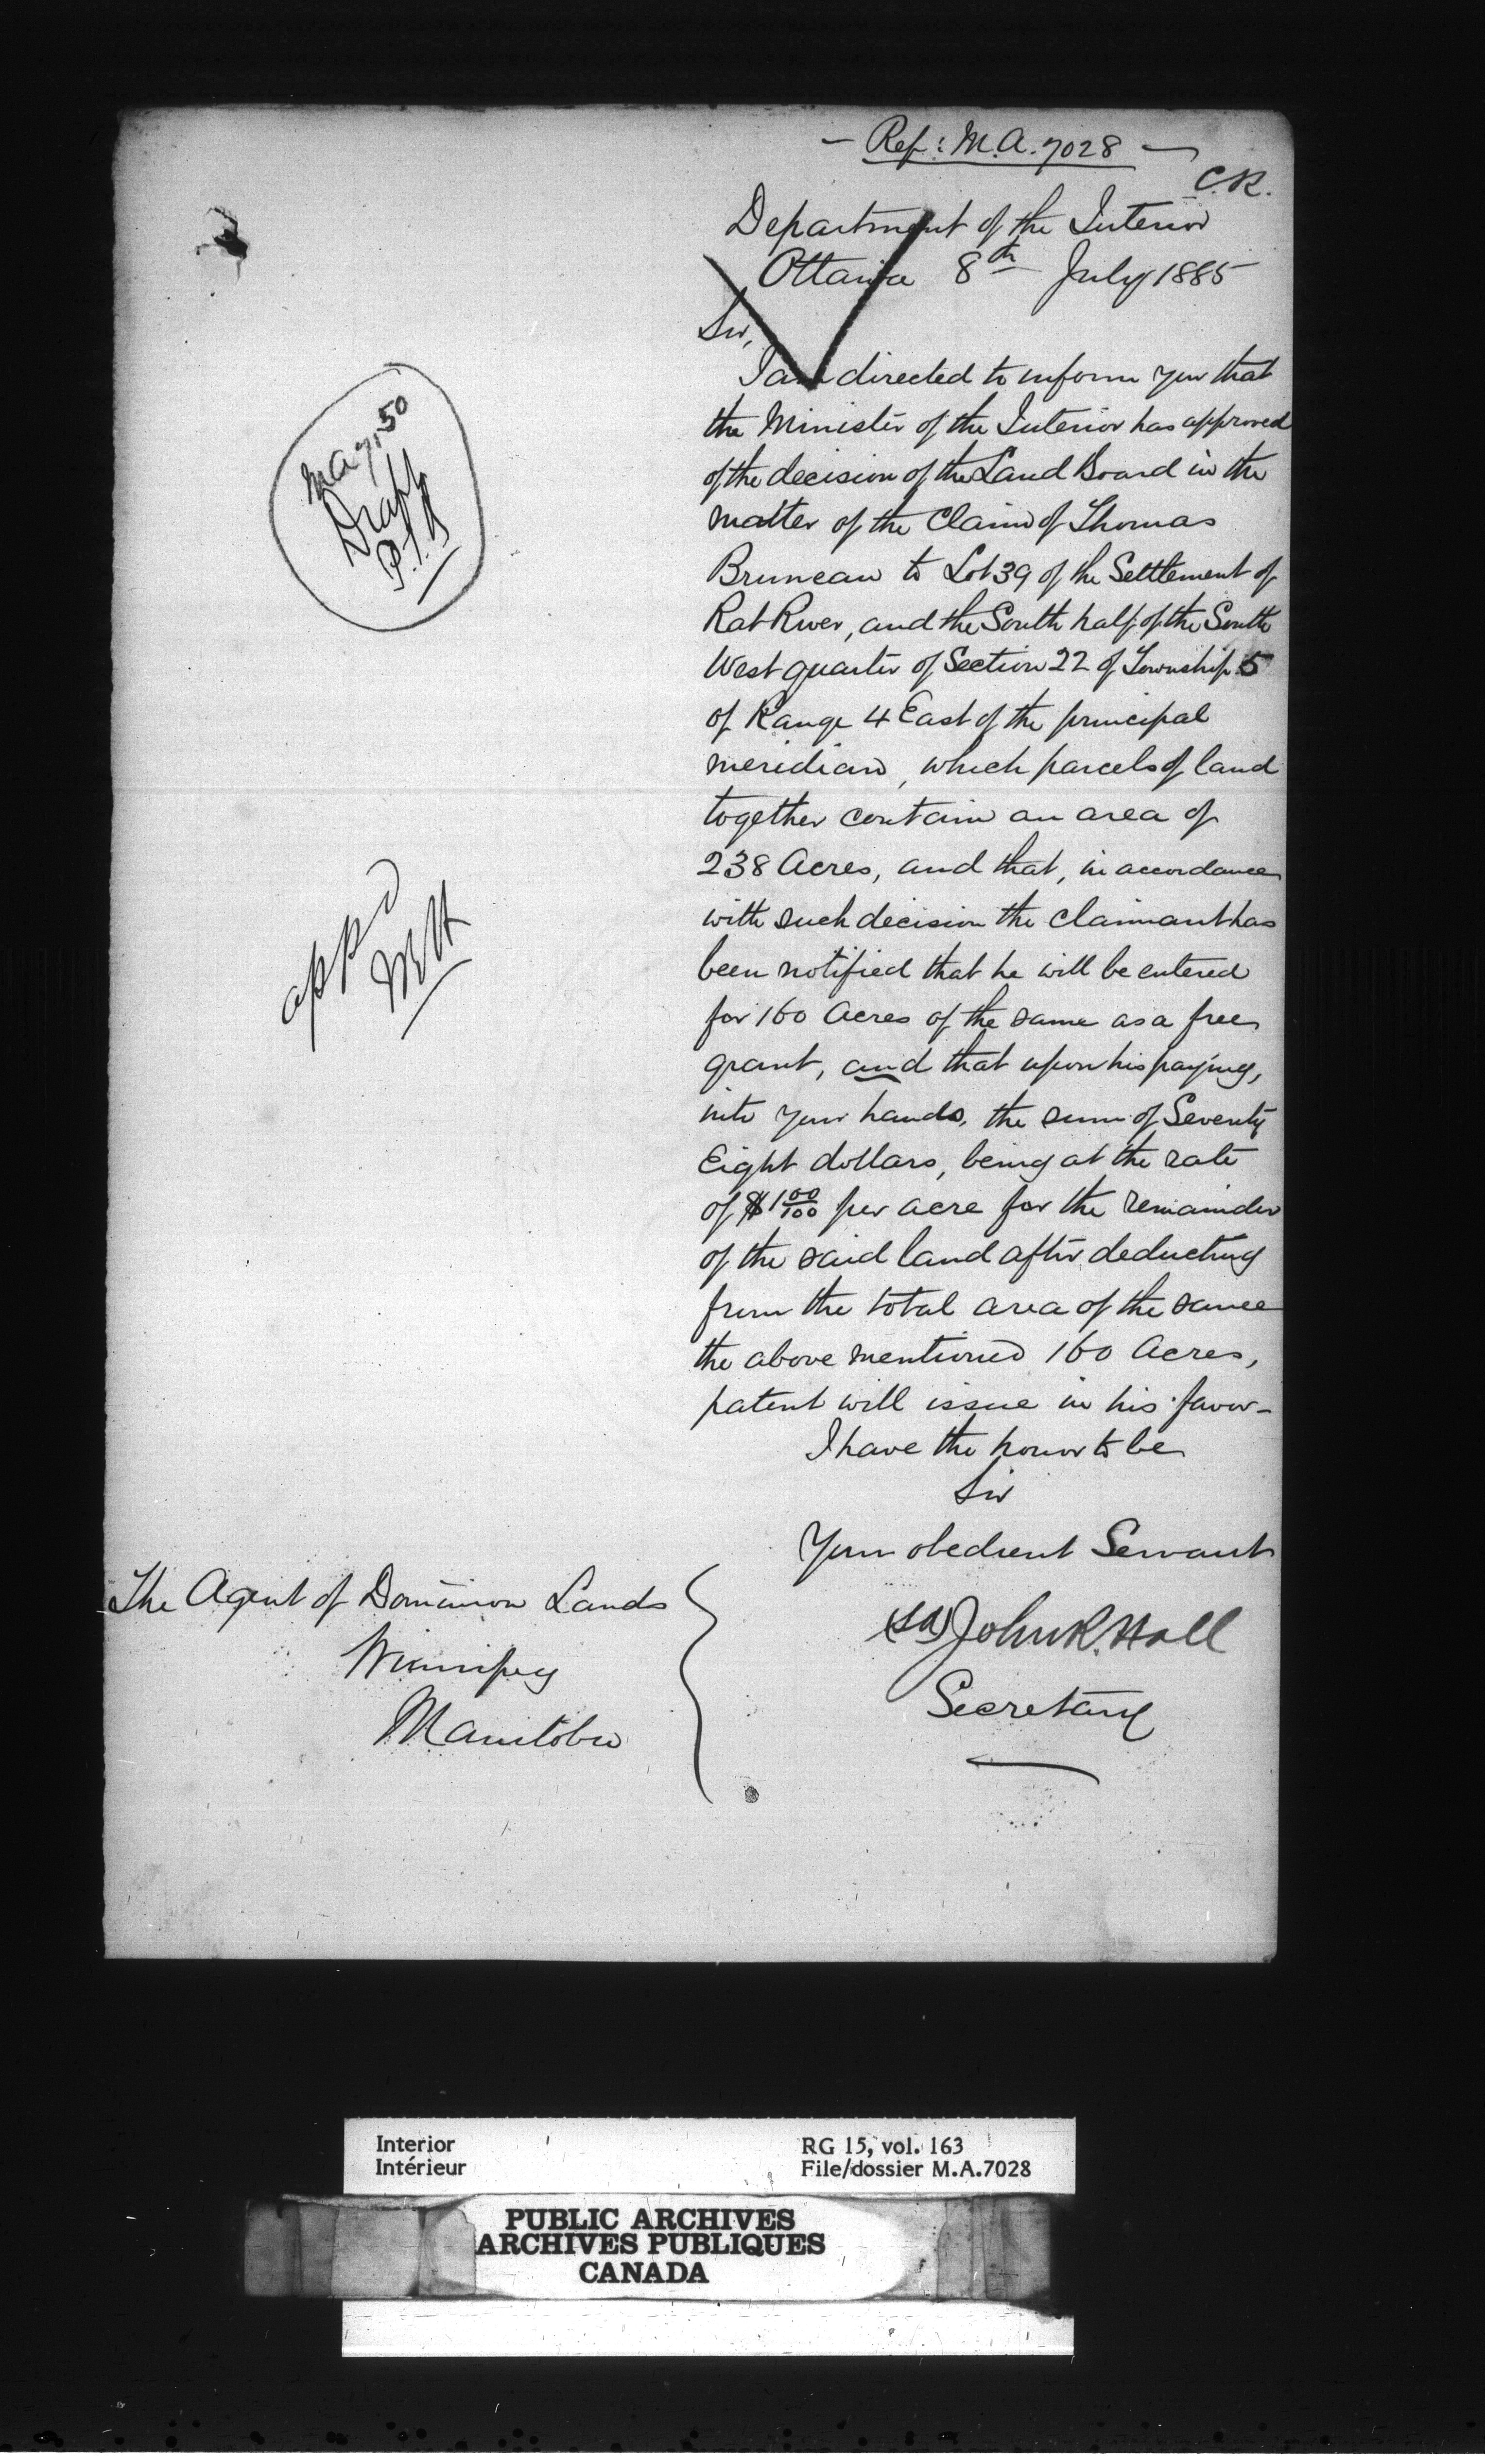 - Ref: M.A. 7028 -
C.R.
Department of the Interior
Ottawa 8th July 1885
Sir,
I am directed to inform you that
the Minister of the Interior has approved
of the decision of the Land Board in the
matter of the Claim of Thomas
Bruneau to Lot 39 of the Settlement of
Rat River, and the South half of the South
West quarter of Section 22 of Township 5
of Range 4 East of the principal
meridian, which parcels of land
together contain an area of
238 Acres, and that, in accordance
with such decision the Claimant has
been notified that he will be entered
for 160 Acres of the same as a free
grant, and that upon his paying,
into your hands, the sum of Seventy
Eight dollars, being at the rate
of $1 00/100 per acre for the remainder
of the said land after deducting
from the total area of the same
the above mentioned 160 Acres,
patent will issue in his favor-
I have the honor to be
Sir
Your obedient Servant
(sd) John R. Hall
Secretary
The Agent of Dominion Lands
Winnipeg
Manitoba
Draft
appd
Interior
Intérieur
RG 15, vol. 163
File/dossier M.A.7028
PUBLIC ARCHIVES
ARCHIVES PUBLIQUES
CANADA